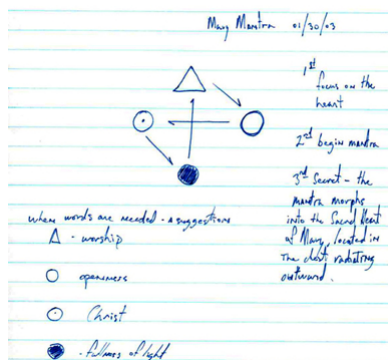 Mary Mantra 01/30/03
1st
focus on the
heart
2nd begin mantra
3rd Secret - the
mantra morphs
into the Sacred Heart
of Mary, located in
the chest radiating
outward.
where words are needed - suggestions
- worship
openness
Christ
- fullness of light